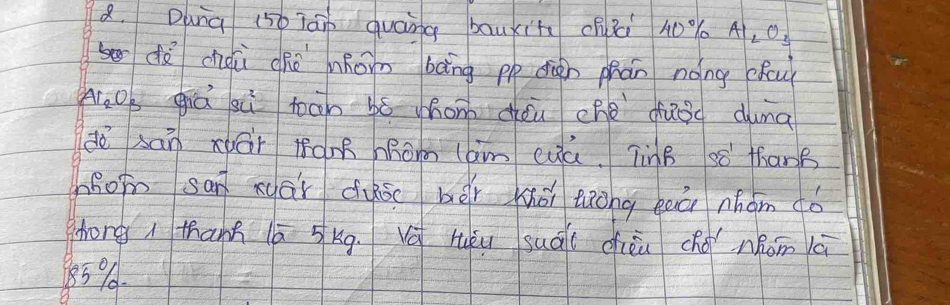 2. Dùng 150 Tấn quặng bauxite chứa 40% Al2O3
để điều chế nhôm bằng pp điện phân nóng chảy
Al2O3 giả sử toàn bộ nhôm điều chế được dùng
để sản xuất thanh nhôm làm cửa. Tính số thanh
nhôm sản xuất được biết khối lượng của nhôm có
trong 1 thanh là 5 kg. Và hiệu suất điều chế nhôm là
85%.